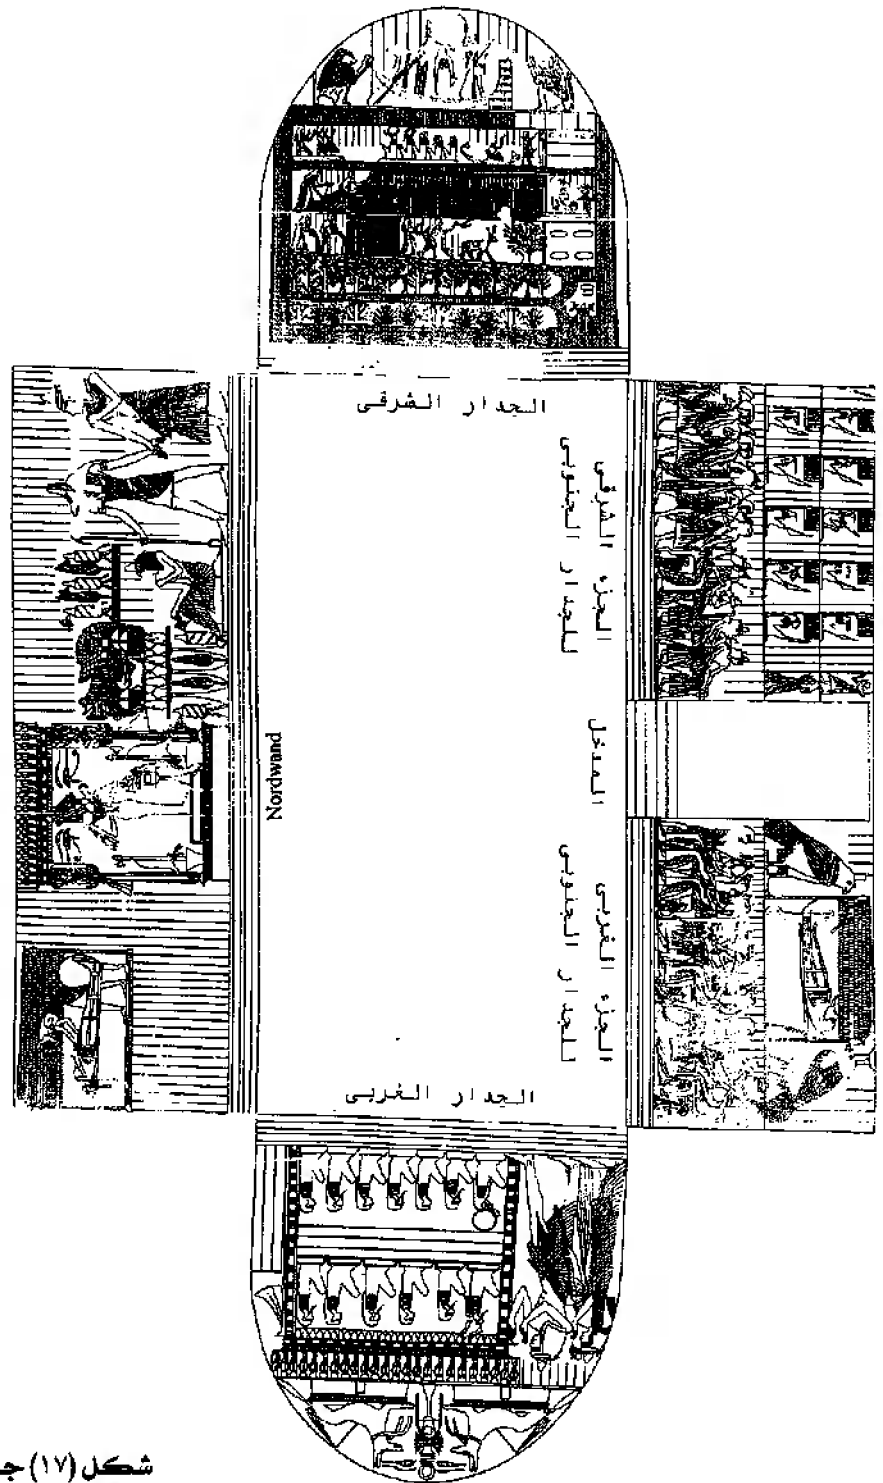 الجدار الشرقى
الجزء الشرقى
للجدار الجنوبى
المدخل
Nordwand
الجزء الغربى
للجدار الجنوبى
الجدار الغربى
شكل (١٧) جـ